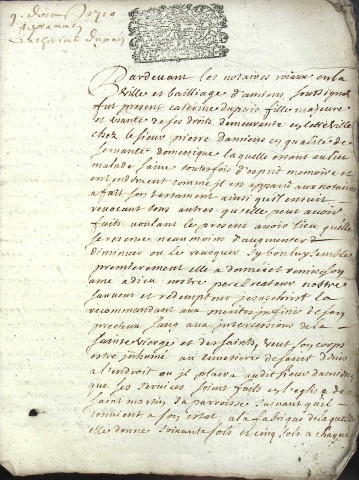 9. decemb. 1710
Testament
Catherine dupuis
Pardevant les notaires roiaux en la
ville et bailliage d'amiens soussignés
fut present caterine dupuis fille majeure
et usante de ses droits demeurante en cette ville
chez le sieur pierre damiens en qualité de
servante domestique laquelle estant au lit
malade saine toutefois d'esprit memoire et
entendement comme il en apparu aux notaires
a fait son testament ainsi qu'il ensuit
revocant tous autres qu'elle peut avoir
faits voulant le present avoir lieu qu'elle
se reserve neaumoins d'augmenter
diminuer ou le revoquer sy bon luy semble
premierement elle a donné et remis son
ame a dieu notre pere createur nostre
sauveur et redempteur jesus christ la
recommandant aux merites infinis de son
precieux sang aux intercessions de la
sainte vierge et des saints, veut son corps
estre inhumé au cimetiere de saint denis
a l'endroit ou il plaira audit sieur damiens
que ses services soient faits en l'eglise de
saint martin sa parroisse suivant qu'il
convient a son estat, a la fabrique de laquelle
elle donne soixante sols et cinq sols a chaque